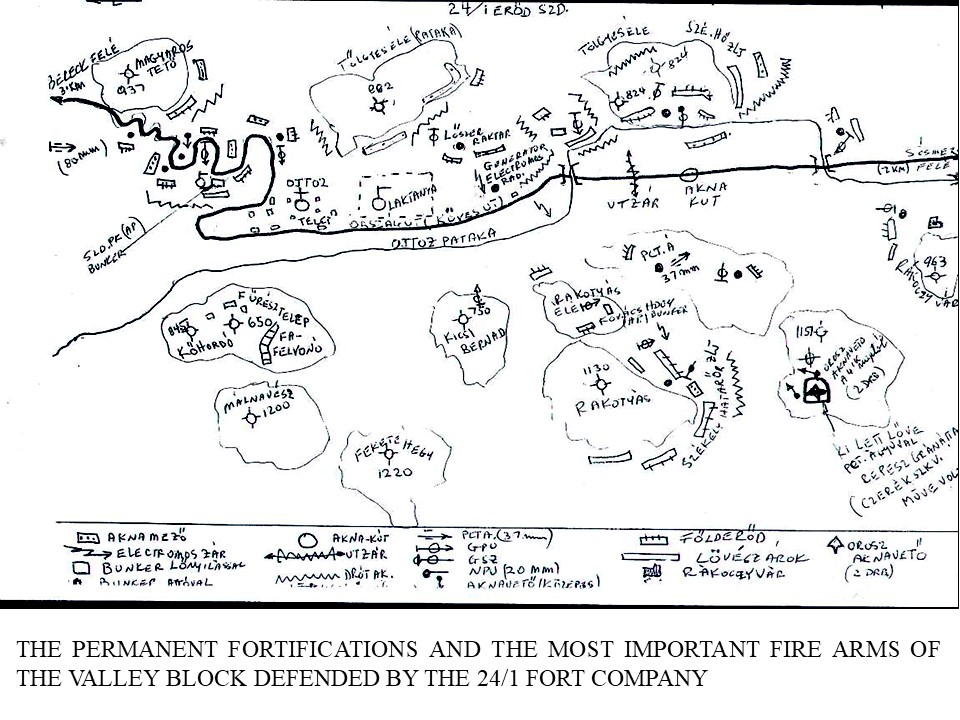 24/I ERŐD SZD.
BERECK FELÉ
3 KM
MAGYAROS
TETŐ
937
(80 mm)
TÖLGYESÉLE (PATAKA)
882
TÖLGYESÉLE
SZÉ. HŐ. ZLJ
824
824
LŐSZER
RAKTÁR
GENERÁTOR
ELECTROMOS
OTTOZ
TELEP
LAKTANYA
ORSZÁGÚT (KÖVESÚT)
OTTOZ PATAKA
UTZÁR
AKNA
KÚT
SÓSMEZ
(2 KM) FELÉ
BUNKER
PCT.Á
37 mm
963
RÁKÓCZY VÁR
FŰRÉSZTELEP
650
KŐHORDÓ
FA-
FELVONÓ
750
KICSI
BERNÁD
RAKOTYÁS
ELEJE
KOVÁCS HDGY
BUNKER
1130
RAKOTYÁS
SZÉKELY HATÁRŐR ZLJ
1151
OROSZ
AKNAVETŐ
(2 DRB)
MÁLNAVÉSZ
1200
FEKETE HEGY
1220
KI LETT LŐVE
PCT. ÁGYÚVAL
REPESZ GRÁNÁTTA
MŰVE VOL
AKNAMEZŐ
ELECTROMOSZÁR
BUNKER LŐNYILÁSSAL
BUNKER
AKNA-KÚT
UTZÁR
DRÓTAK.
PCTÁ. (37 mm)
GPU
GSZ
NPU (20 mm)
AKNAVETŐ (KÖZEPES)
FÖLDERŐD
LÖVÉSZÁROK
RÁKÓCZYVÁR
OROSZ
AKNAVETŐ
(2 DRB)
THE PERMANENT FORTIFICATIONS AND THE MOST IMPORTANT FIRE ARMS OF
THE VALLEY BLOCK DEFENDED BY THE 24/1 FORT COMPANY